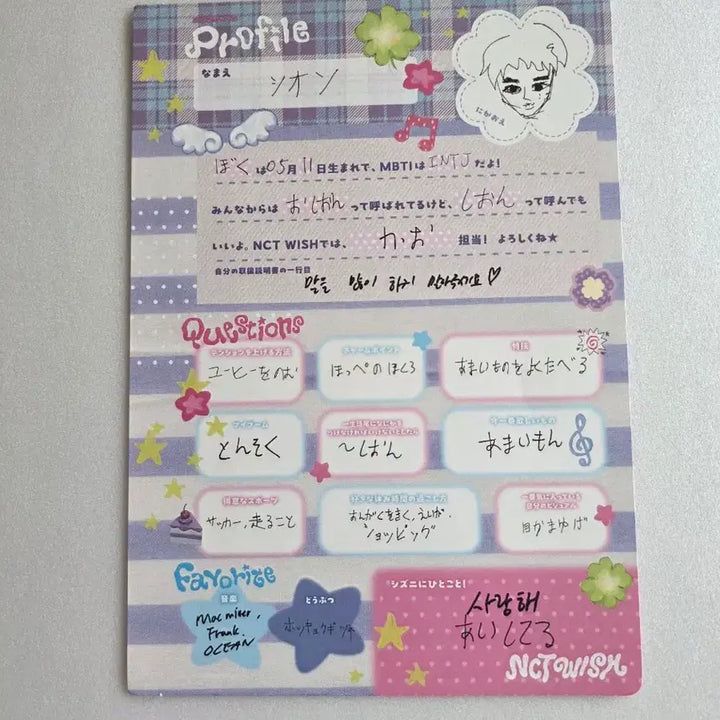 Profile
なまえ
シオン
にがおえ
ぼくは05月11日生まれで、MBTIはINTJだよ!
みんなからはおしおんって呼ばれてるけど、しおんって呼んでも
いいよ。NCT WISHでは、かお担当! よろしくね★
自分の取扱説明書の一行目
말을 많이 하기 시작해요♡
Questions
テンションを上げる方法
コーヒーをのむ
チャームポイント
ほっぺのほくろ
特技
あまいものをよくたべる
マイブーム
とんそく
~しおん
今一番欲しいもの
あまいもん
得意なスポーツ
サッカー、走ること
好きな休み時間の過ごし方
おんがくをきく、えいが、
ショッピング
一番気に入っている
自分のビジュアル
目かまゆげ
Favorite
音楽
Mac miller,
Frank.
OCEAN
どうぶつ
ホッキョクギツネ
シズニにひとこと!
사랑해
あいしてる
NCT WISH